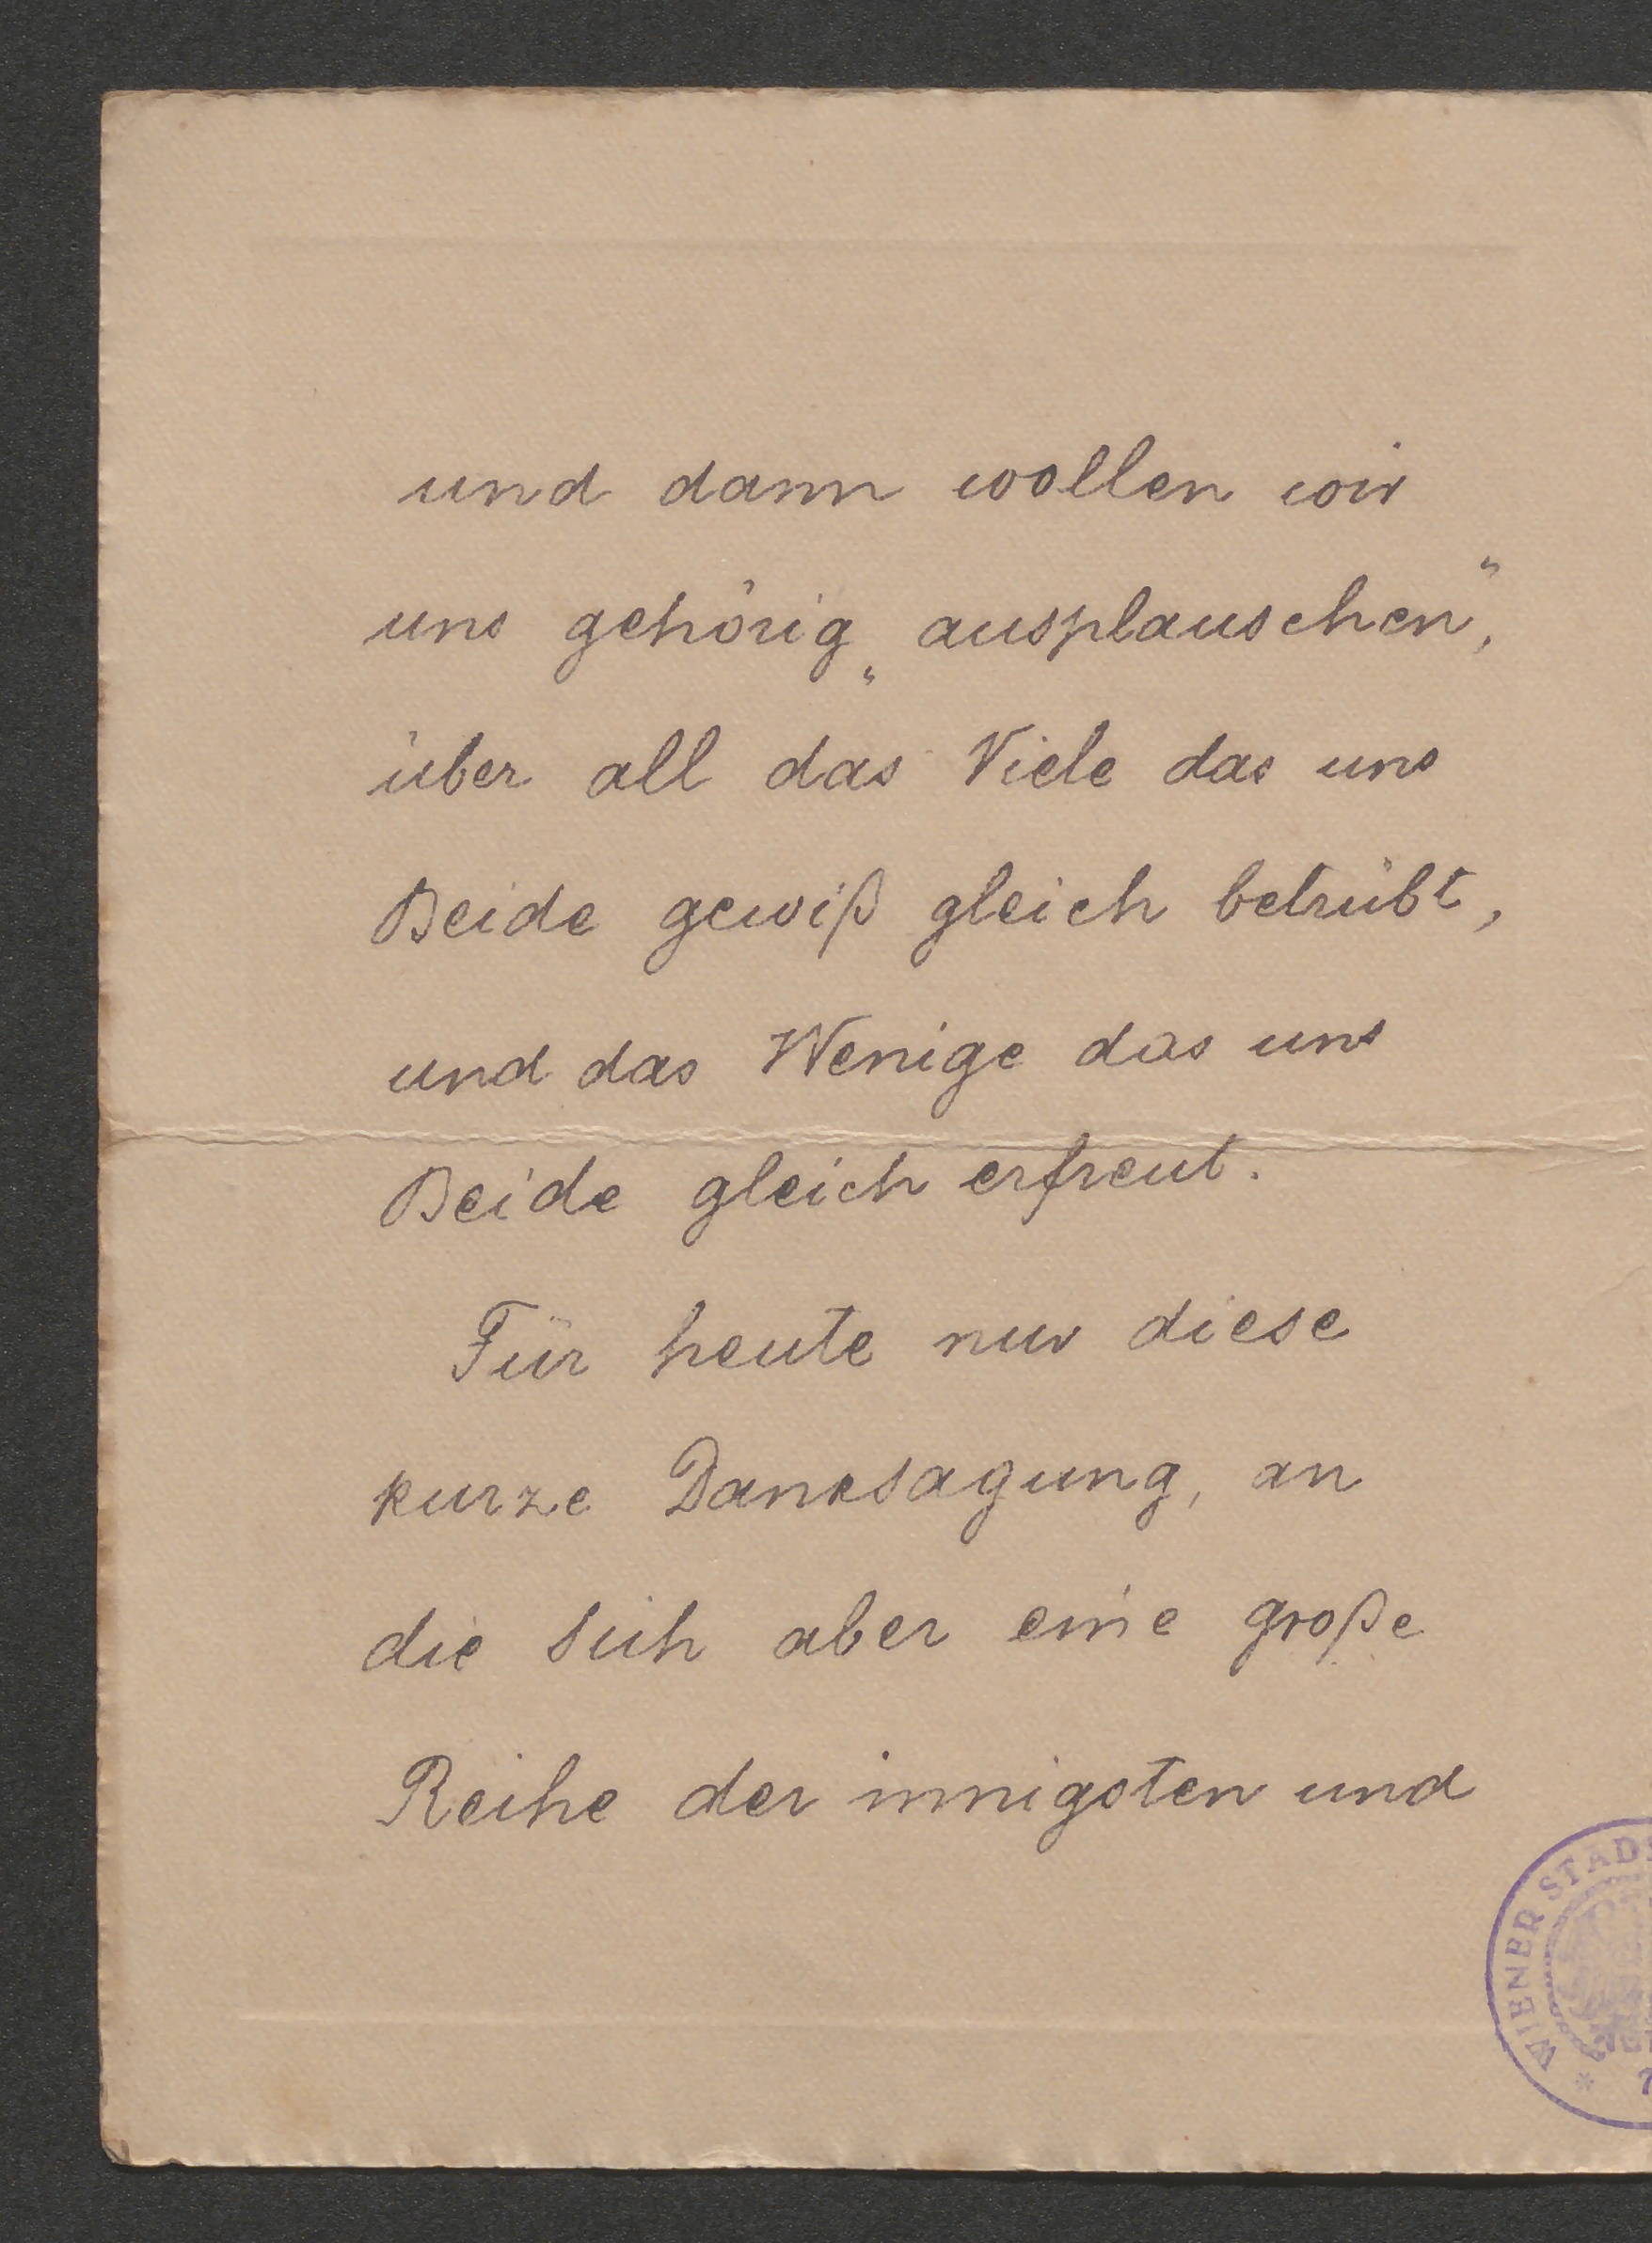 und dann wollen wir
uns gehörig „ausplauschen“,
über all das Viele das uns
Beide gewiß gleich betrübt,
und das Wenige das uns
Beide gleich erfreut.
Für heute nur diese
kurze Danksagung, an
die sich aber eine große
Reihe der innigsten und
WIENER STAD
7